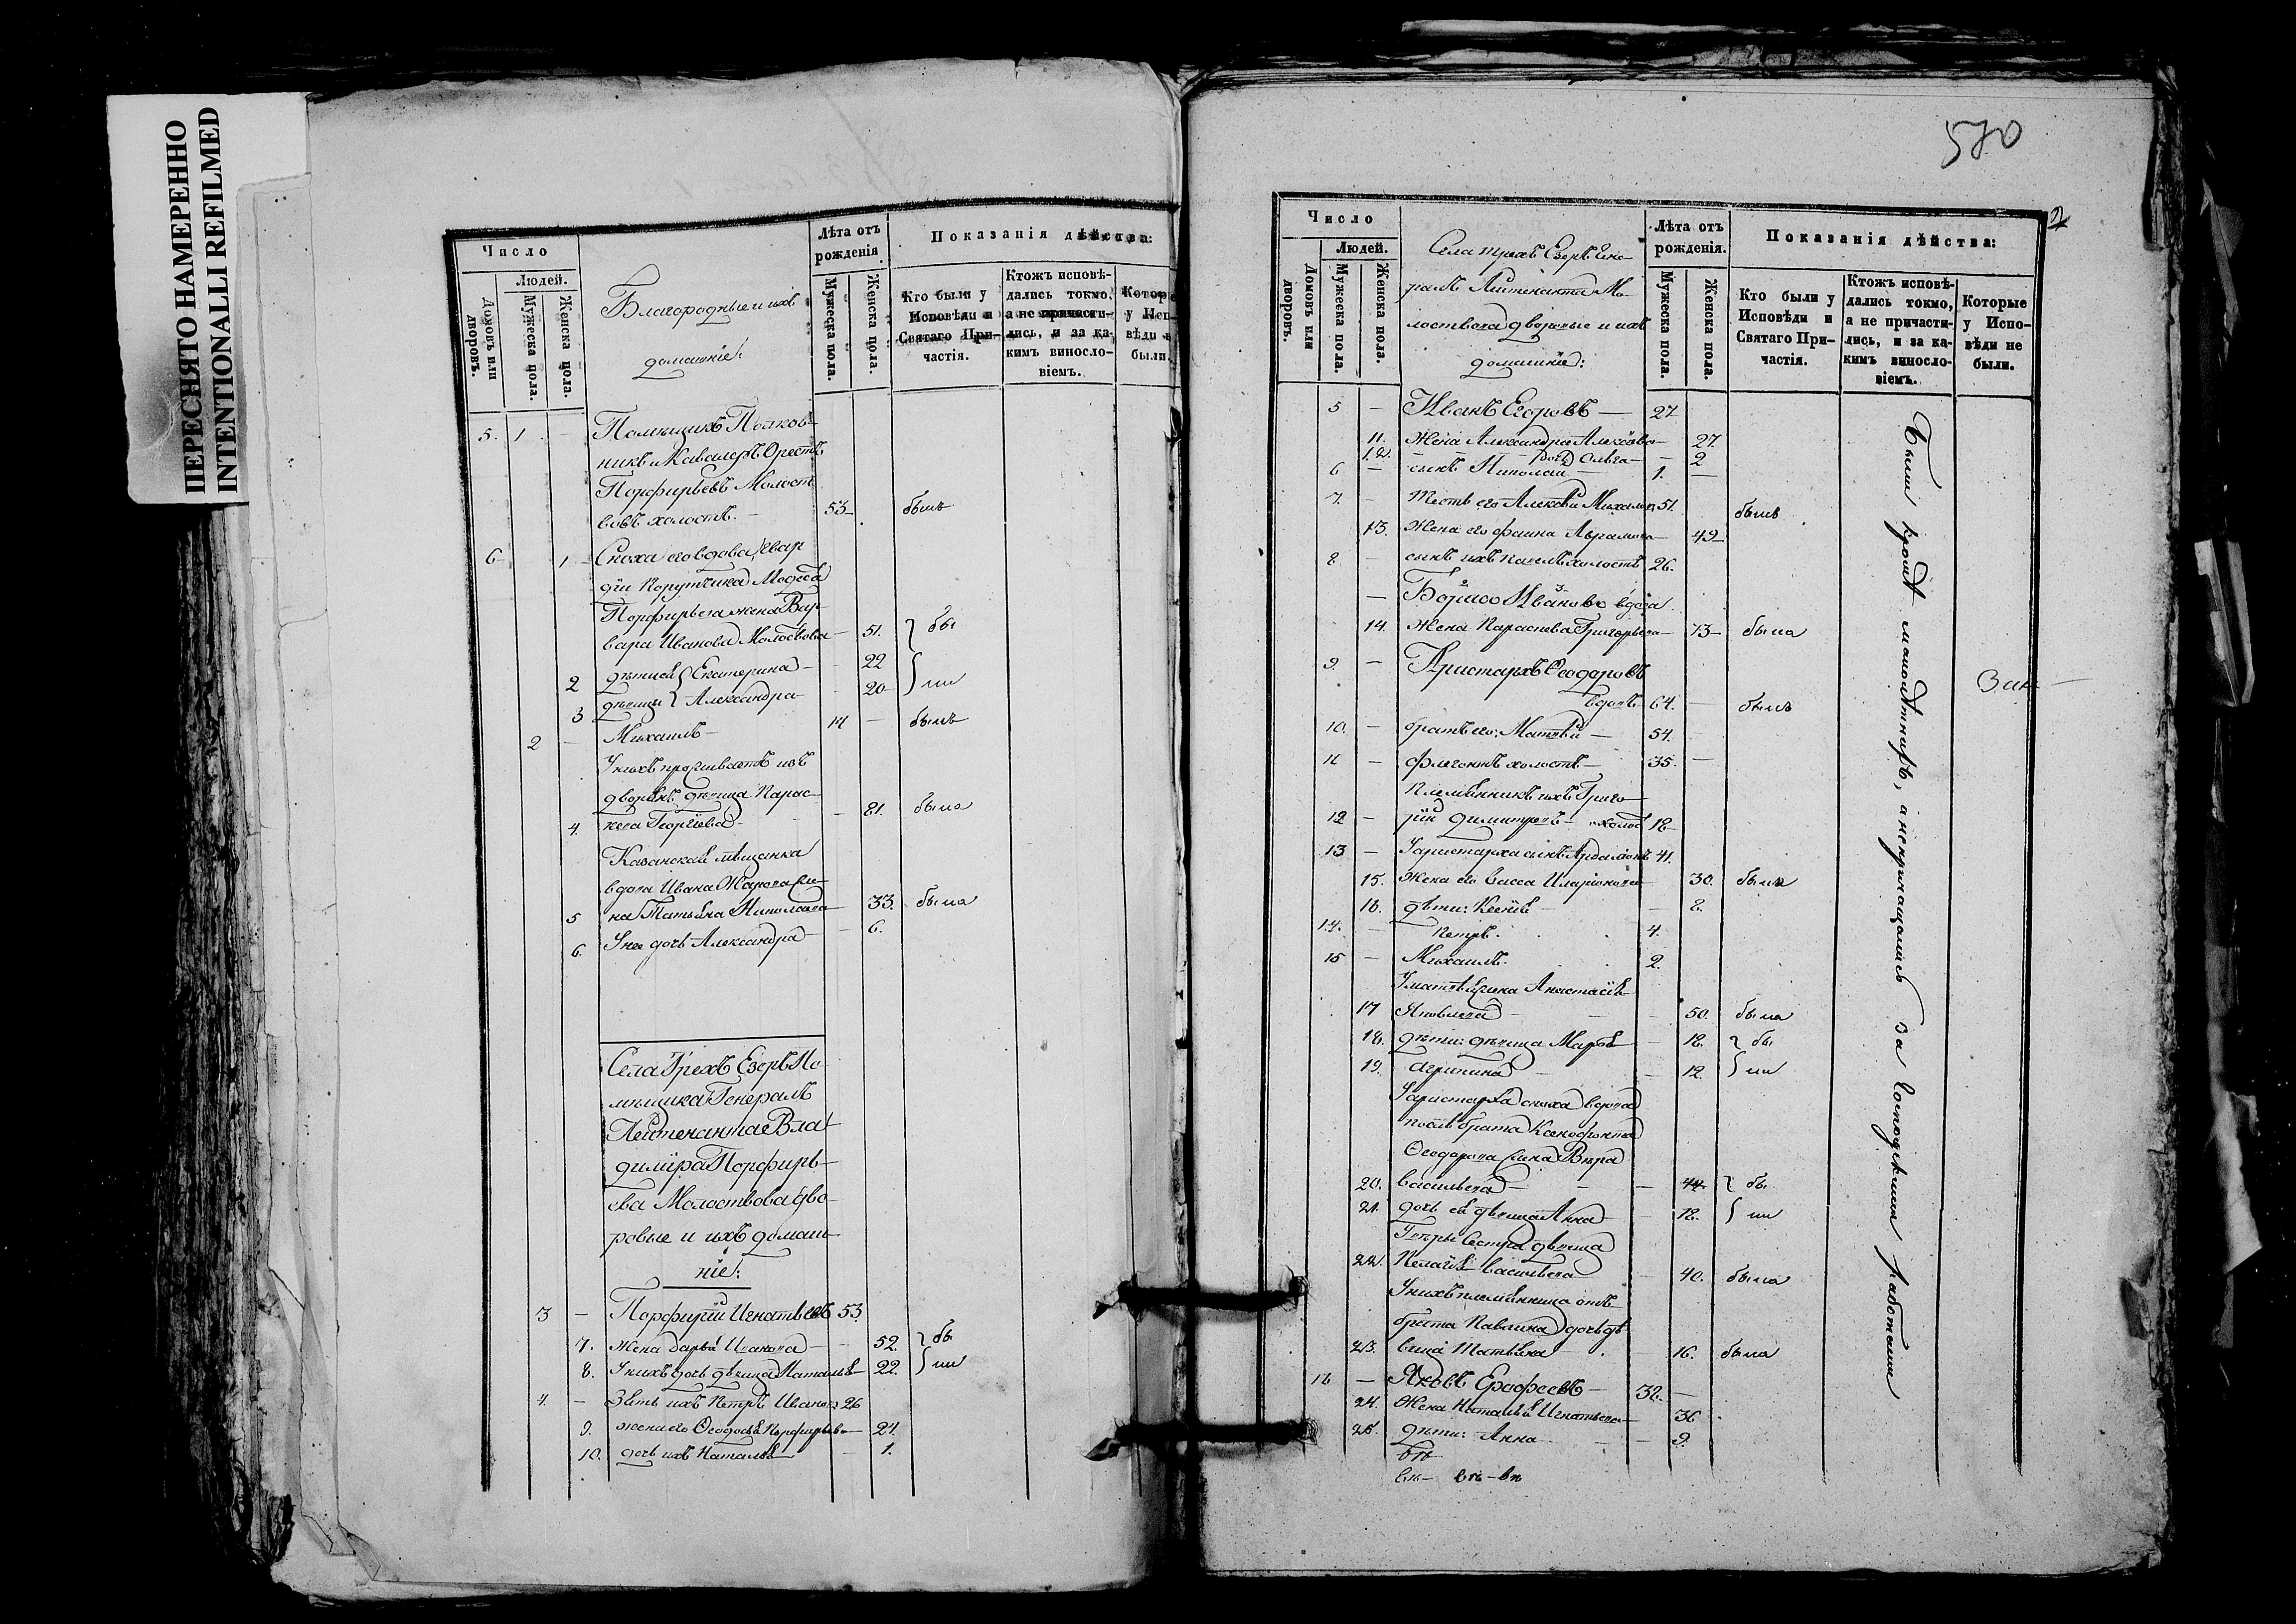 ПЕРЕСНЯТО НАМЕРЕННО
INTENTIONALLI REFILMED
Число
Людей.
Домовъ или дворовъ.
Мужеска пола.
Женска пола.
Благородные и ихъ
домашніе:
Лѣта отъ рожденія
Мужеска пола.
Женска пола.
Показанія дѣйства:
Кто были у Исповѣди и Святаго Причастія.
Ктожъ исповѣдались токмо, а не причастились, и за какимъ винословіемъ.
Которые
у Исп
вѣди н
были.
5. 1 - Помѣщикъ Полков-
никъ и Кавалеръ Орестъ
Порфирьевъ Молост
вовъ холостъ. - 53 - былъ
6 1 - Сноха его вдова Гвар
діи Порутчика Модеста
Порфирьева жена Вар
вара Иванова Молоствова - 51. } бы
2 дѣвица } Екатерина - 22
3 дѣвицы } Александра - 20 } ли
2 - Михаилъ - 14 - былъ
У нихъ проживаетъ изъ
дворянъ дѣвица Парас-
4. кева Георгіева - 81. была
Казанская мѣщанка
вдова Ивана Жарова же-
5 на Татьяна Николаева - 33. была
6. У нее дочь Александра - 6.
Села Трехъ Езеръ По
мѣщика Генералъ
Лейтенанта Вла
диміра Порфирь-
ева Молоствова дво-
ровые и ихъ домаш-
ніе:
3 - Порфирій Игнатьевъ 53.
7. Жена Дарья Иванова - 52. } бы
8. У нихъ дочь дѣвица Наталья 22. } ли
4. - Зять ихъ Петръ Иванов 26
9. жена его Ѳеодосья Порфирьева - 21.
10. дочь ихъ Наталья - 1.
570
2
Число
Людей.
Домовъ или дворовъ.
Мужеска пола.
Женска пола.
Села трехъ Езеръ Гене
ралъ Лейтенанта Мо-
лоствова дворовые и ихъ
домашніе:
Лѣта отъ рожденія.
Мужеска пола.
Женска пола.
Показанія дѣйства:
Кто были у Исповѣди и Святаго Причастія.
Ктожъ исповѣдались токмо, а не причастились, и за какимъ винословіемъ.
Которые у Исповѣди не были.
5 - Иванъ Егоровъ - 27.
11. Жена Александра Алексѣева - 27.
12. дочь Ольга - 2
6 - сынъ Николай 1. -
7. - Тесть его Алексѣй Михайлов 51. былъ
13. Жена его Фаина Абрамова - 49 -
8 - сынъ ихъ Павелъ холостъ 26.
- Бориса Иванова вдова
14. Жена Параскева Григорьева - 73 - была
9. - Аристархъ Ѳеодоровъ
вдовъ 64. - былъ
10. - братъ его Матвѣй - 54.
11 - Флегонтъ холостъ - 35. -
Племянникъ ихъ Григо
12 - рій Димитріевъ - холос 18 -
13 - У аристарха сынъ Ардаліонъ 41.
15. Жена его Васса Иларіонова 30. была
16. дѣти: Ксенія - 8.
14. - Петръ. 4.
15 - Михаилъ. 2.
У матвѣя жена Анастасія
17 Яковлева - 50. была
18. дѣти: дѣвица Марья - 18. } бы
19. Агрипина - 12. } ли
У аристарха сноха вдова
послѣ брата Ксенофонта
Ѳеодорова жена Вѣра
20. Васильева - 44. } бы
21. дочь ея дѣвица Анна - 18. } ли
сестра дѣвица
22. Пелагія Васильева 40. была
У нихъ племянница отъ
брата Павлина дочь дѣ-
23. вица Татьяна - 16. была
16 - Яковъ Ерофеевъ - 32. -
24. Жена Наталья Игнатьева 36.
25. дѣти: Анна - 9.
Были кромѣ малолѣтнихъ, а непричащались за Господскими работами